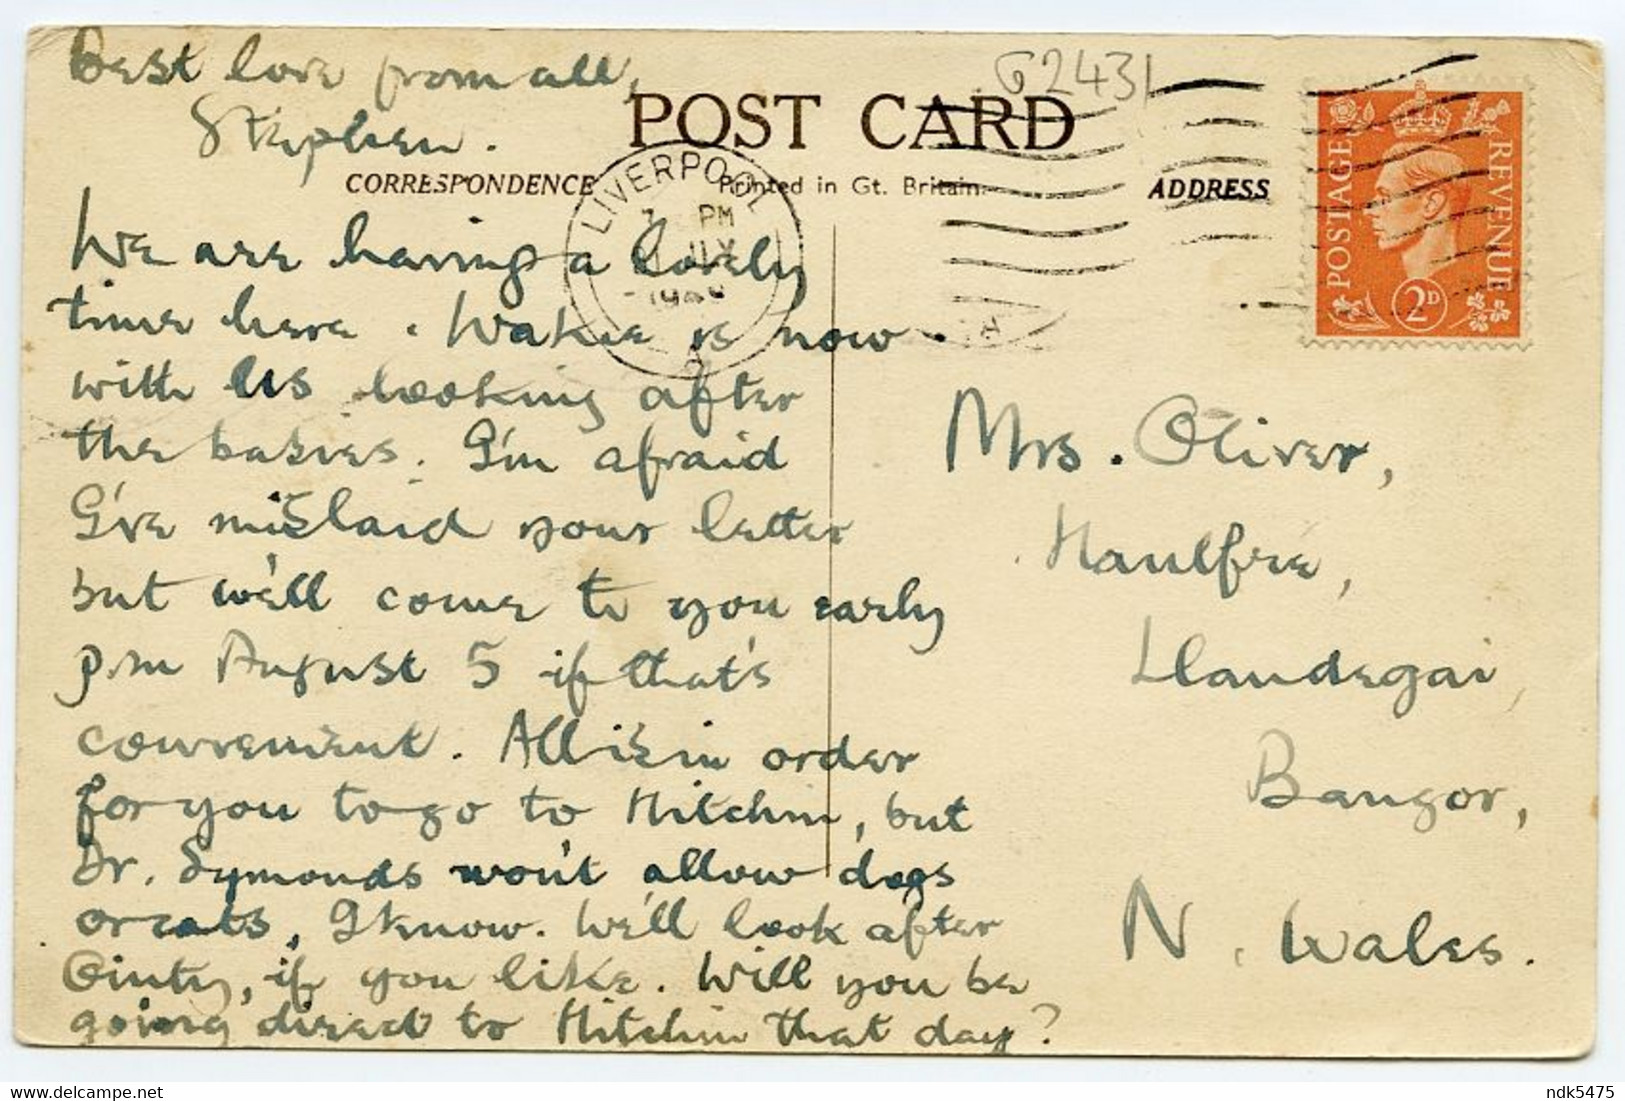 Best love from all,
Stephen.
G2431
POST CARD
CORRESPONDENCE
Printed in Gt. Britain.
ADDRESS
LIVERPOOL
PM
JLY
A
A
POSTAGE
REVENUE
2D
We are having a lovely
time here. Wakie is now
with us looking after
the babies. I'm afraid
I've mislaid your letter
but we'll come to you early
p.m August 5 if that's
convenient. All is in order
for you to go to Hitchin, but
Dr. Symonds won't allow dogs
or cats, I know. We'll look after
if you like. Will you be
going direct to Hitchin that day?
Mrs. Oliver,
Haulfre,
Llandegai,
Bangor,
N. Wales.
ndk5475